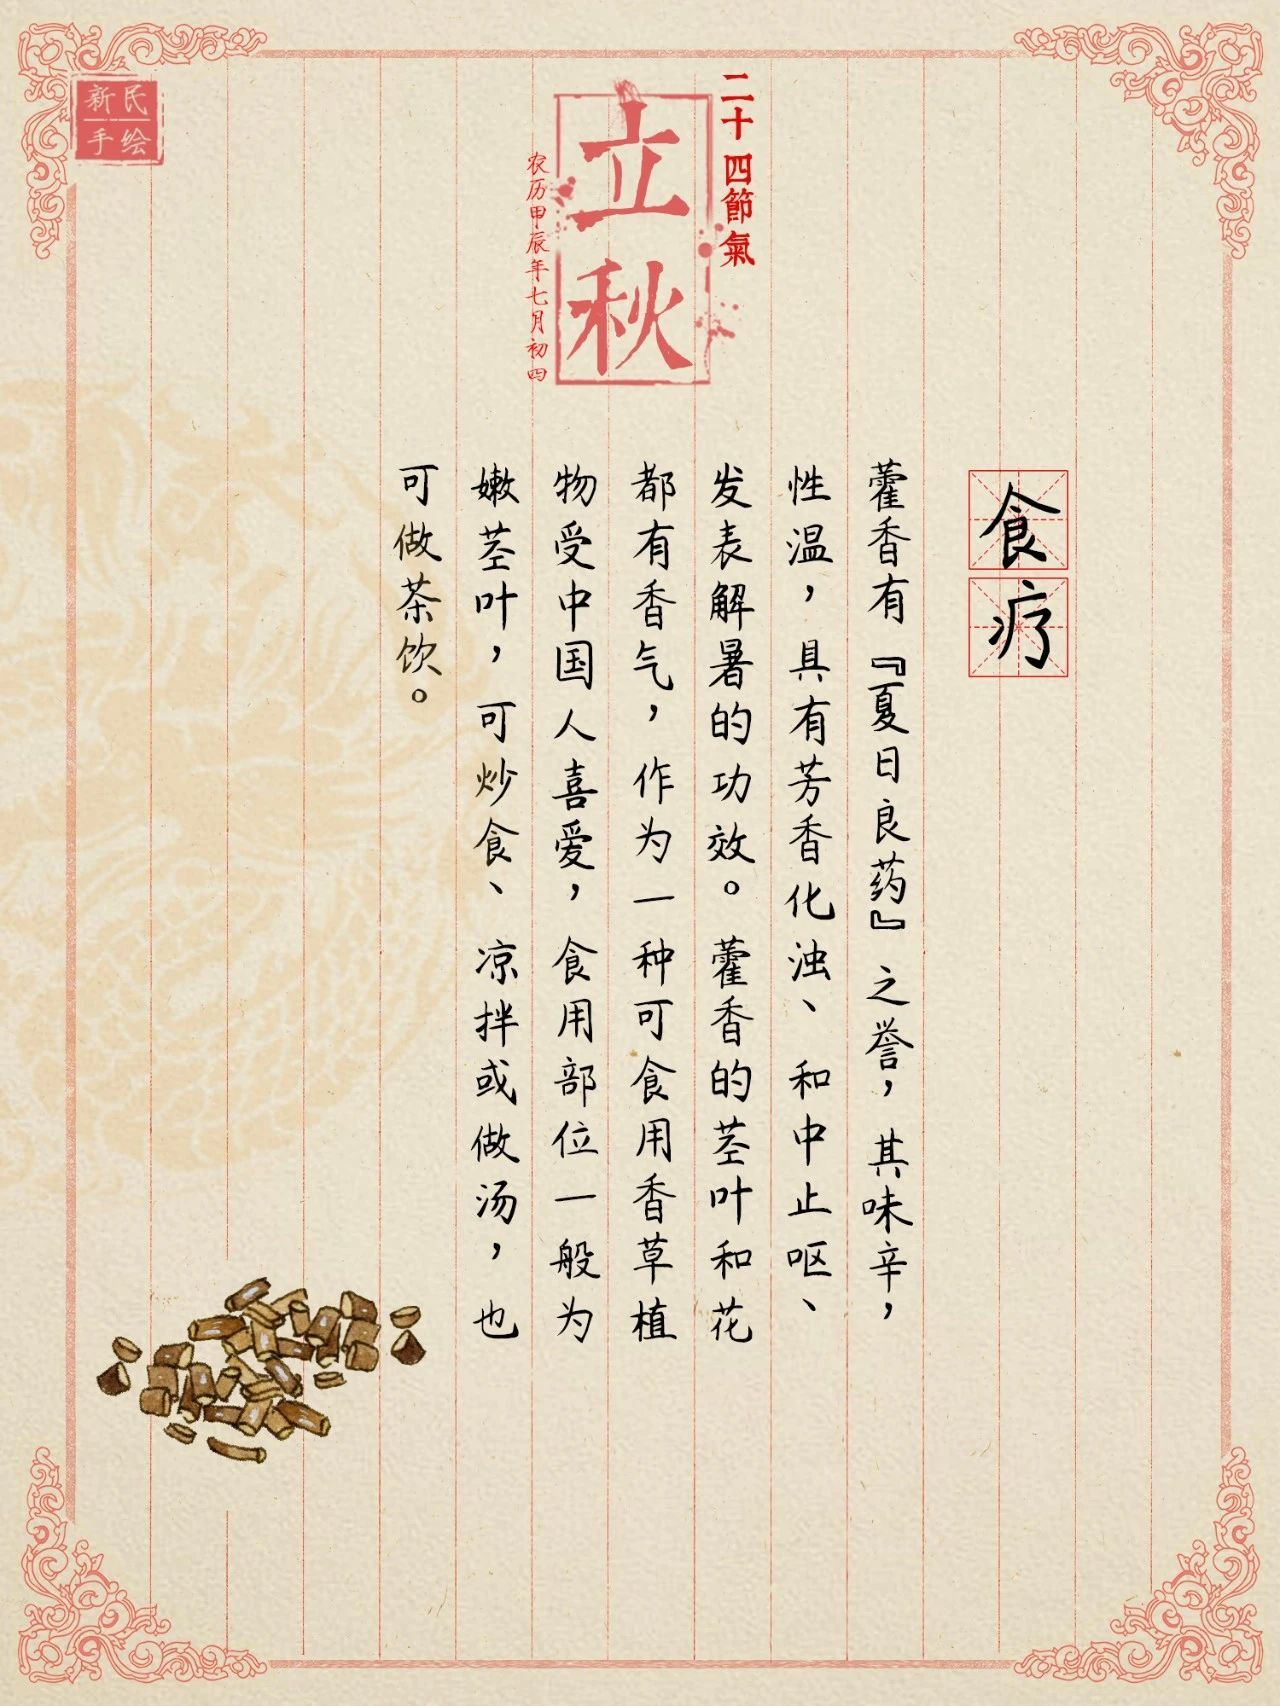 新民
手绘
二十四節氣
立秋
农历甲辰年七月初四
食疗
藿香有『夏日良药』之誉，其味辛，
性温，具有芳香化浊、和中止呕、
发表解暑的功效。藿香的茎叶和花
都有香气，作为一种可食用香草植
物受中国人喜爱，食用部位一般为
嫩茎叶，可炒食、凉拌或做汤，也
可做茶饮。